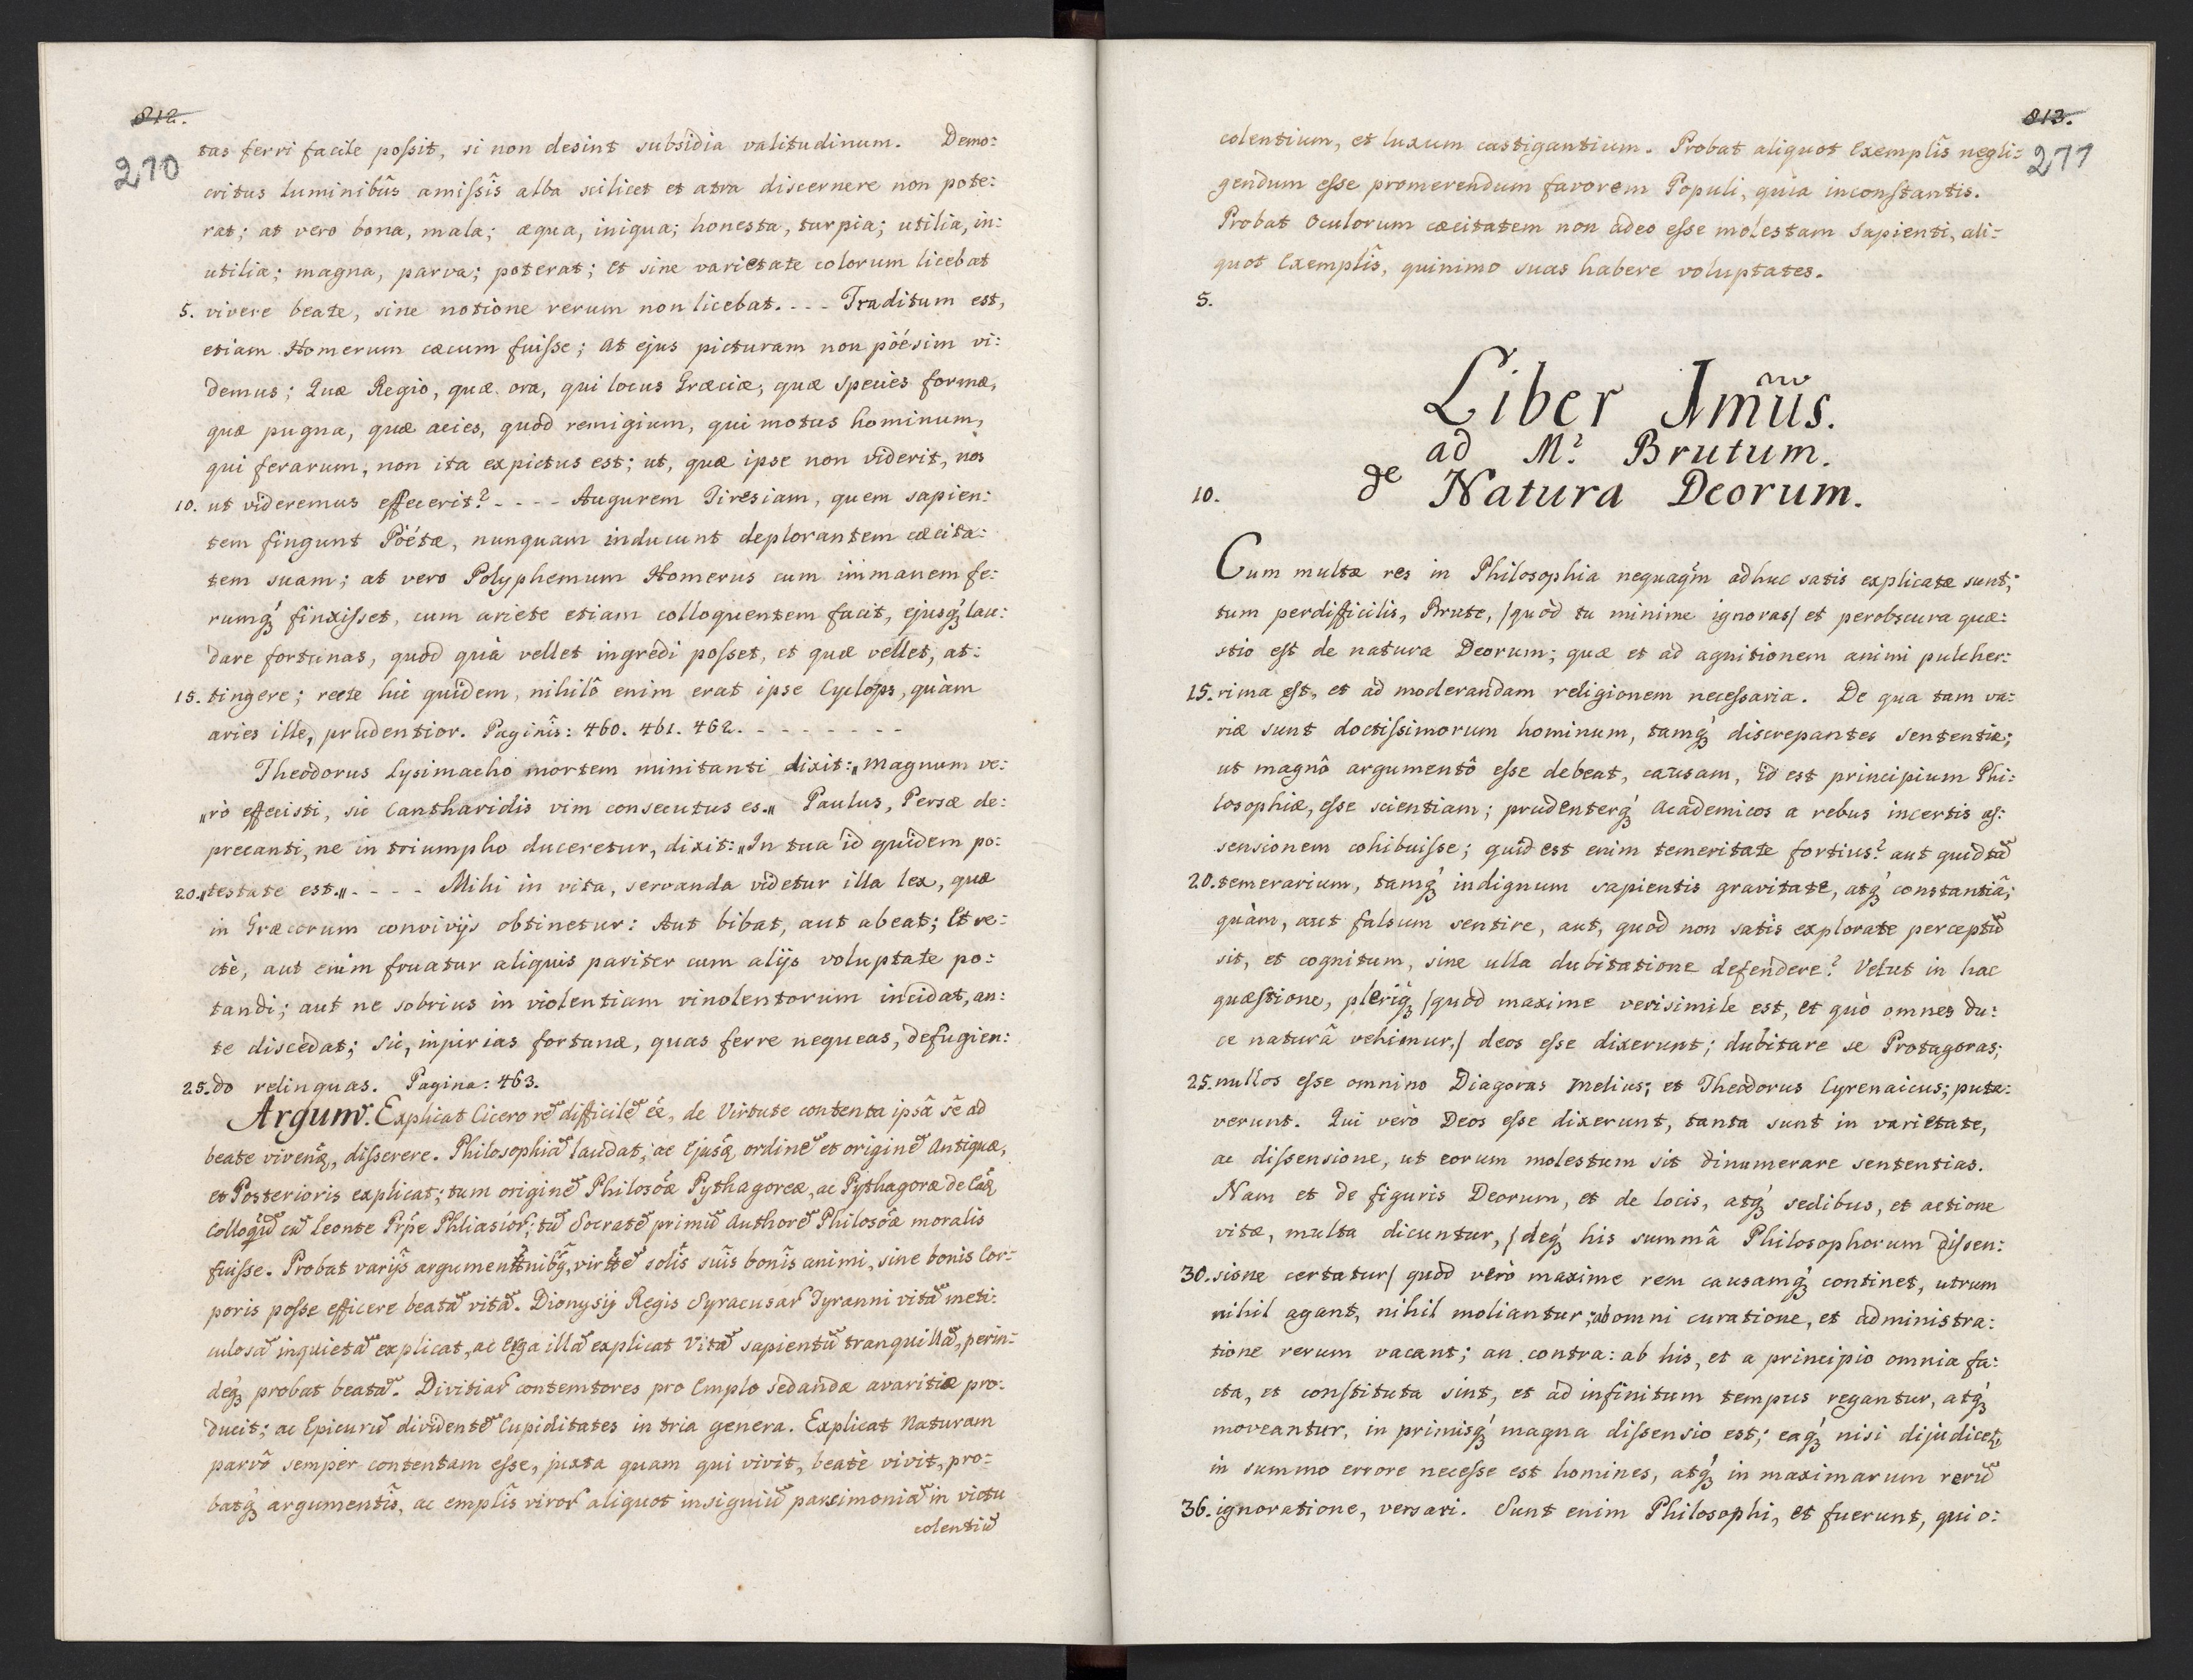 812.
210
tas ferri facile possit, si non desint subsidia valitudinum. Demo:
critus luminibûs amissîs alba scilicet et atra discernere non pote:
rat; at vero bona, mala; æqua, iniqua; honesta, turpia; utilia, in:
utilia; magna, parva; poterat; et sine varietate colorum licebat
5. vivere beate, sine notione rerum non licebat. - - - Traditum est,
etiam Homerum cæcum fuisse; at ejus picturam non pöésim vi:
demus; Quæ Regio, quæ ora, qui locus Græciæ, quæ species formæ,
quæ pugna, quæ acies, quod remigium, qui motus hominum,
qui ferarum, non ita expictus est; ut, quæ ipse non viderit, nos
10. ut videremus effecerit? - - - - Augurem Tiresiam, quem sapien:
tem fingunt Pöétæ, nunquam inducunt deplorantem cæcita:
tem suam; at vero Polyphemum Homerus cum immanem fe:
rumq́ finxisset, cum ariete etiam colloquentem facit, ejusq́ lau:
dare fortunas, quod quà vellet ingredi posset, et quæ vellet, at:
15. tingere; recte hic quidem, nihilô enim erat ipse Cyclops, quàm
aries ille, prudentior. Paginîs: 460. 461. 462. - - - - - - -
Theodorus Lysimacho mortem minitanti dixit: „Magnum ve:
„rò effecisti, sic Cantharidis vim consecutus es.„ Paulus, Persæ de:
precanti, ne in triumpho duceretur, dixit: „In tua id quidem po:
20. „testate est.„ - - - - Mihi in vita, servanda videtur illa lex, quæ
in Græcorum convivijs obtinetur: Aut bibat, aut abeat; Et re:
ctè, aut enim fruatur aliquis pariter cum alijs voluptate po:
tandi; aut ne sobrius in violentiam vinolentorum incidat, an:
te discedat; Sic, injurias fortunæ, quas ferre nequeas, defugien:
25. do relinquas. Pagina: 463.
Argum. Explicat Cicero rẽ difficilẽ eê, de Virtute contenta ipsâ sê ad
beate vivenđ, disserere. Philosophiã laudat; ac Ejusđ ordinẽ et originẽ Antiquæ,
et Posterioris explicat; tum originẽ Philosóæ Pythagoreæ, ac Pythagoræ de Eađ
colloqũ cũ Leonte Prp̂e Phliasior; tũ Socratẽ primũ Authorẽ Philosóæ moralis
fuisse. Probat varijs argumentnibq, virttẽ solîs suîs bonîs animi, sine bonis Cor:
poris posse efficere beatã vitã. Dionysij Regis Syracusar Tyranni vitã meti:
culosã inquietã explicat, ac Erga illã explicat Vitã sapientũ tranquillã, perin:
deq́ probat beatã. Divitiar contemtores pro Emplo sedandæ avaritiæ pro:
ducit; ac Epicurũ dividentẽ Cupiditates in tria genera. Explicat Naturam
parvô semper contentam esse, juxta quam qui vivit, beatè vivit, pro:
batq́ argumentîs, ac emplîs viror aliquot insigniũ parsimoniã in victu
colentiũ
813.
211
colentium, et luxum castigantium. Probat aliquot Exemplîs negli:
gendum esse promerendum favorem Populi, quia inconstantis.
Probat Oculorum cæcitatem non adeo esse molestam Sapienti, ali:
quot Exemplîs, quinimo suas habere voluptates.
5.
Liber Imus.
ad M? Brutum.
10. de Natura Deorum.
Cum multæ res in Philosophia nequaq́m adhuc satis explicatæ sunt;
tum perdifficilis, Brute, /quòd tu minime ignoras/ et perobscura quæ:
stio est de natura Deorum; quæ et ad agnitionem animi pulcher:
15. rima est, et ad moderandam religionem necessaria. De qua tam va:
riæ sunt doctissimorum hominum, tamq́ discrepantes sententiæ;
ut magnô argumentô esse debeat, causam, id est principium Phi:
losophiæ, esse scientiam; prudenterq́ Academicos a rebus incertis as:
sensionem cohibuisse; quid est enim temeritate fortius? aut quid tã
20. temerarium, tamq́ indignum sapientis gravitate, atq́ constantiâ;
quàm, aut falsum sentire, aut, quod non satis explorate perceptũ
sit, et cognitum, sine ulla dubitatione defendere? Velut in hac
quæstione, pleriq́ /quod maxime verisimile est, et quò omnes du:
ce naturâ vehimur,/ deos esse dixerunt; dubitare se Protagoras;
25. nullos esse omnino Diagoras Melius; et Theodorus Cyrenaicus; puta:
verunt. Qui verò Deos esse dixerunt, tanta sunt in varietate,
ac dissensione, ut eorum molestum sit dinumerare sententias.
Nam et de figuris Deorum, et de locis, atq́ sedibus, et actione
vitæ, multa dicuntur, /deq́ his summâ Philosophorum dissen:
30. sione certatur/ quod verò maxime rem causamq́ continet, utrum
nihil agant, nihil moliantur; ab omni curatione, et administra:
tione rerum vacant; an contra: ab his, et a principio omnia fa:
cta, et constituta sint, et ad infinitum tempus regantur, atq́
moveantur, in primisq́ magna dissensio est; eaq́ nisi dijudicet,
in summo errore necesse est homines, atq́ in maximarum rerũ
36. ignoratione, versari. Sunt enim Philosophi, et fuerunt, qui o: